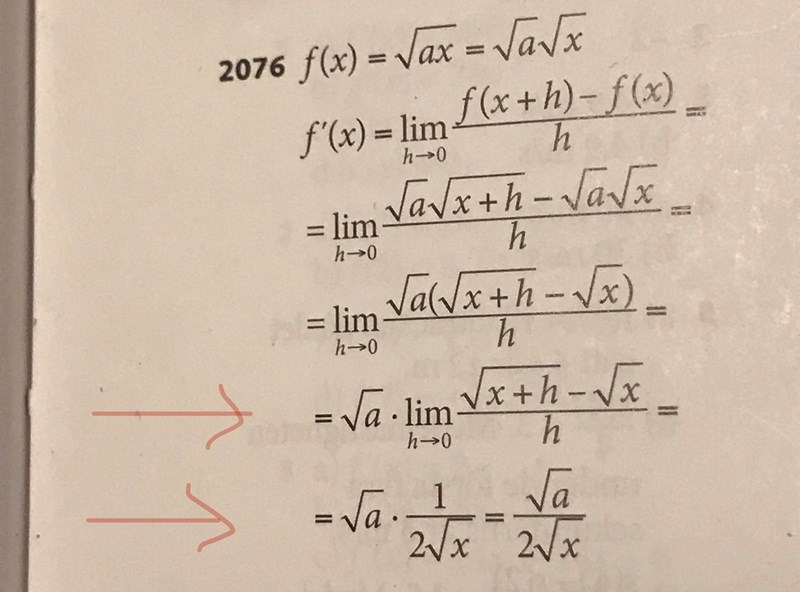 2076 f(x) = √ax = √a√x
f'(x) = lim h→0 (f(x + h) − f(x))/h =
= lim h→0 (√a√(x + h) − √a√x)/h =
= lim h→0 (√a(√(x + h) − √x))/h =
= √a · lim h→0 (√(x + h) − √x)/h =
= √a · 1/(2√x) = √a/(2√x)